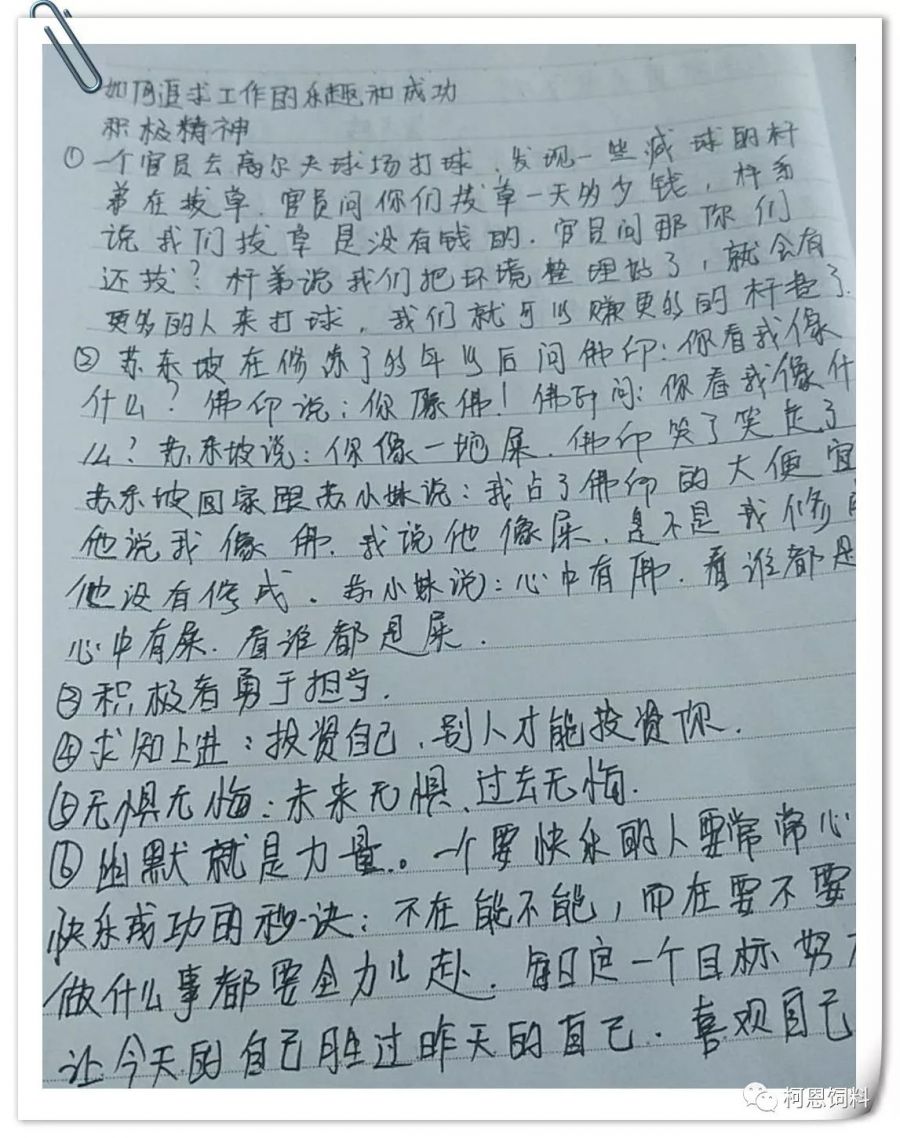 如何追求工作的乐趣和成功
积极精神
①一个官员去高尔夫球场打球、发现一些减球的杆
弟在拔草.官员问你们拔草一天多少钱,杆弟
说我们拔草是没有钱的.官员问那你们
还拔?杆弟说我们把环境整理好了,就会有
更多的人来打球,我们就可以赚更多的杆费了.
②苏东坡在修炼了多年以后问佛印:你看我像
什么?佛印说:你像佛!佛印问:你看我像什
么?苏东坡说:你像一坨屎.佛印笑了笑走了
苏东坡回家跟苏小妹说:我占了佛印的大便宜
他说我像佛.我说他像屎.是不是我修
他没有修成.苏小妹说:心中有佛.看谁都是
心中有屎.看谁都是屎.
③积极者勇于担当.
④求知上进:投资自己、别人才能投资你.
⑤无惧无悔:未来无惧、过去无悔.
⑥幽默就是力量。一个要快乐的人要常常心
快乐成功的秘诀:不在能不能,而在要不要
做什么事都要全力以赴.每日定一个目标努
让今天的自己胜过昨天的自己.喜观自己
柯恩饲料